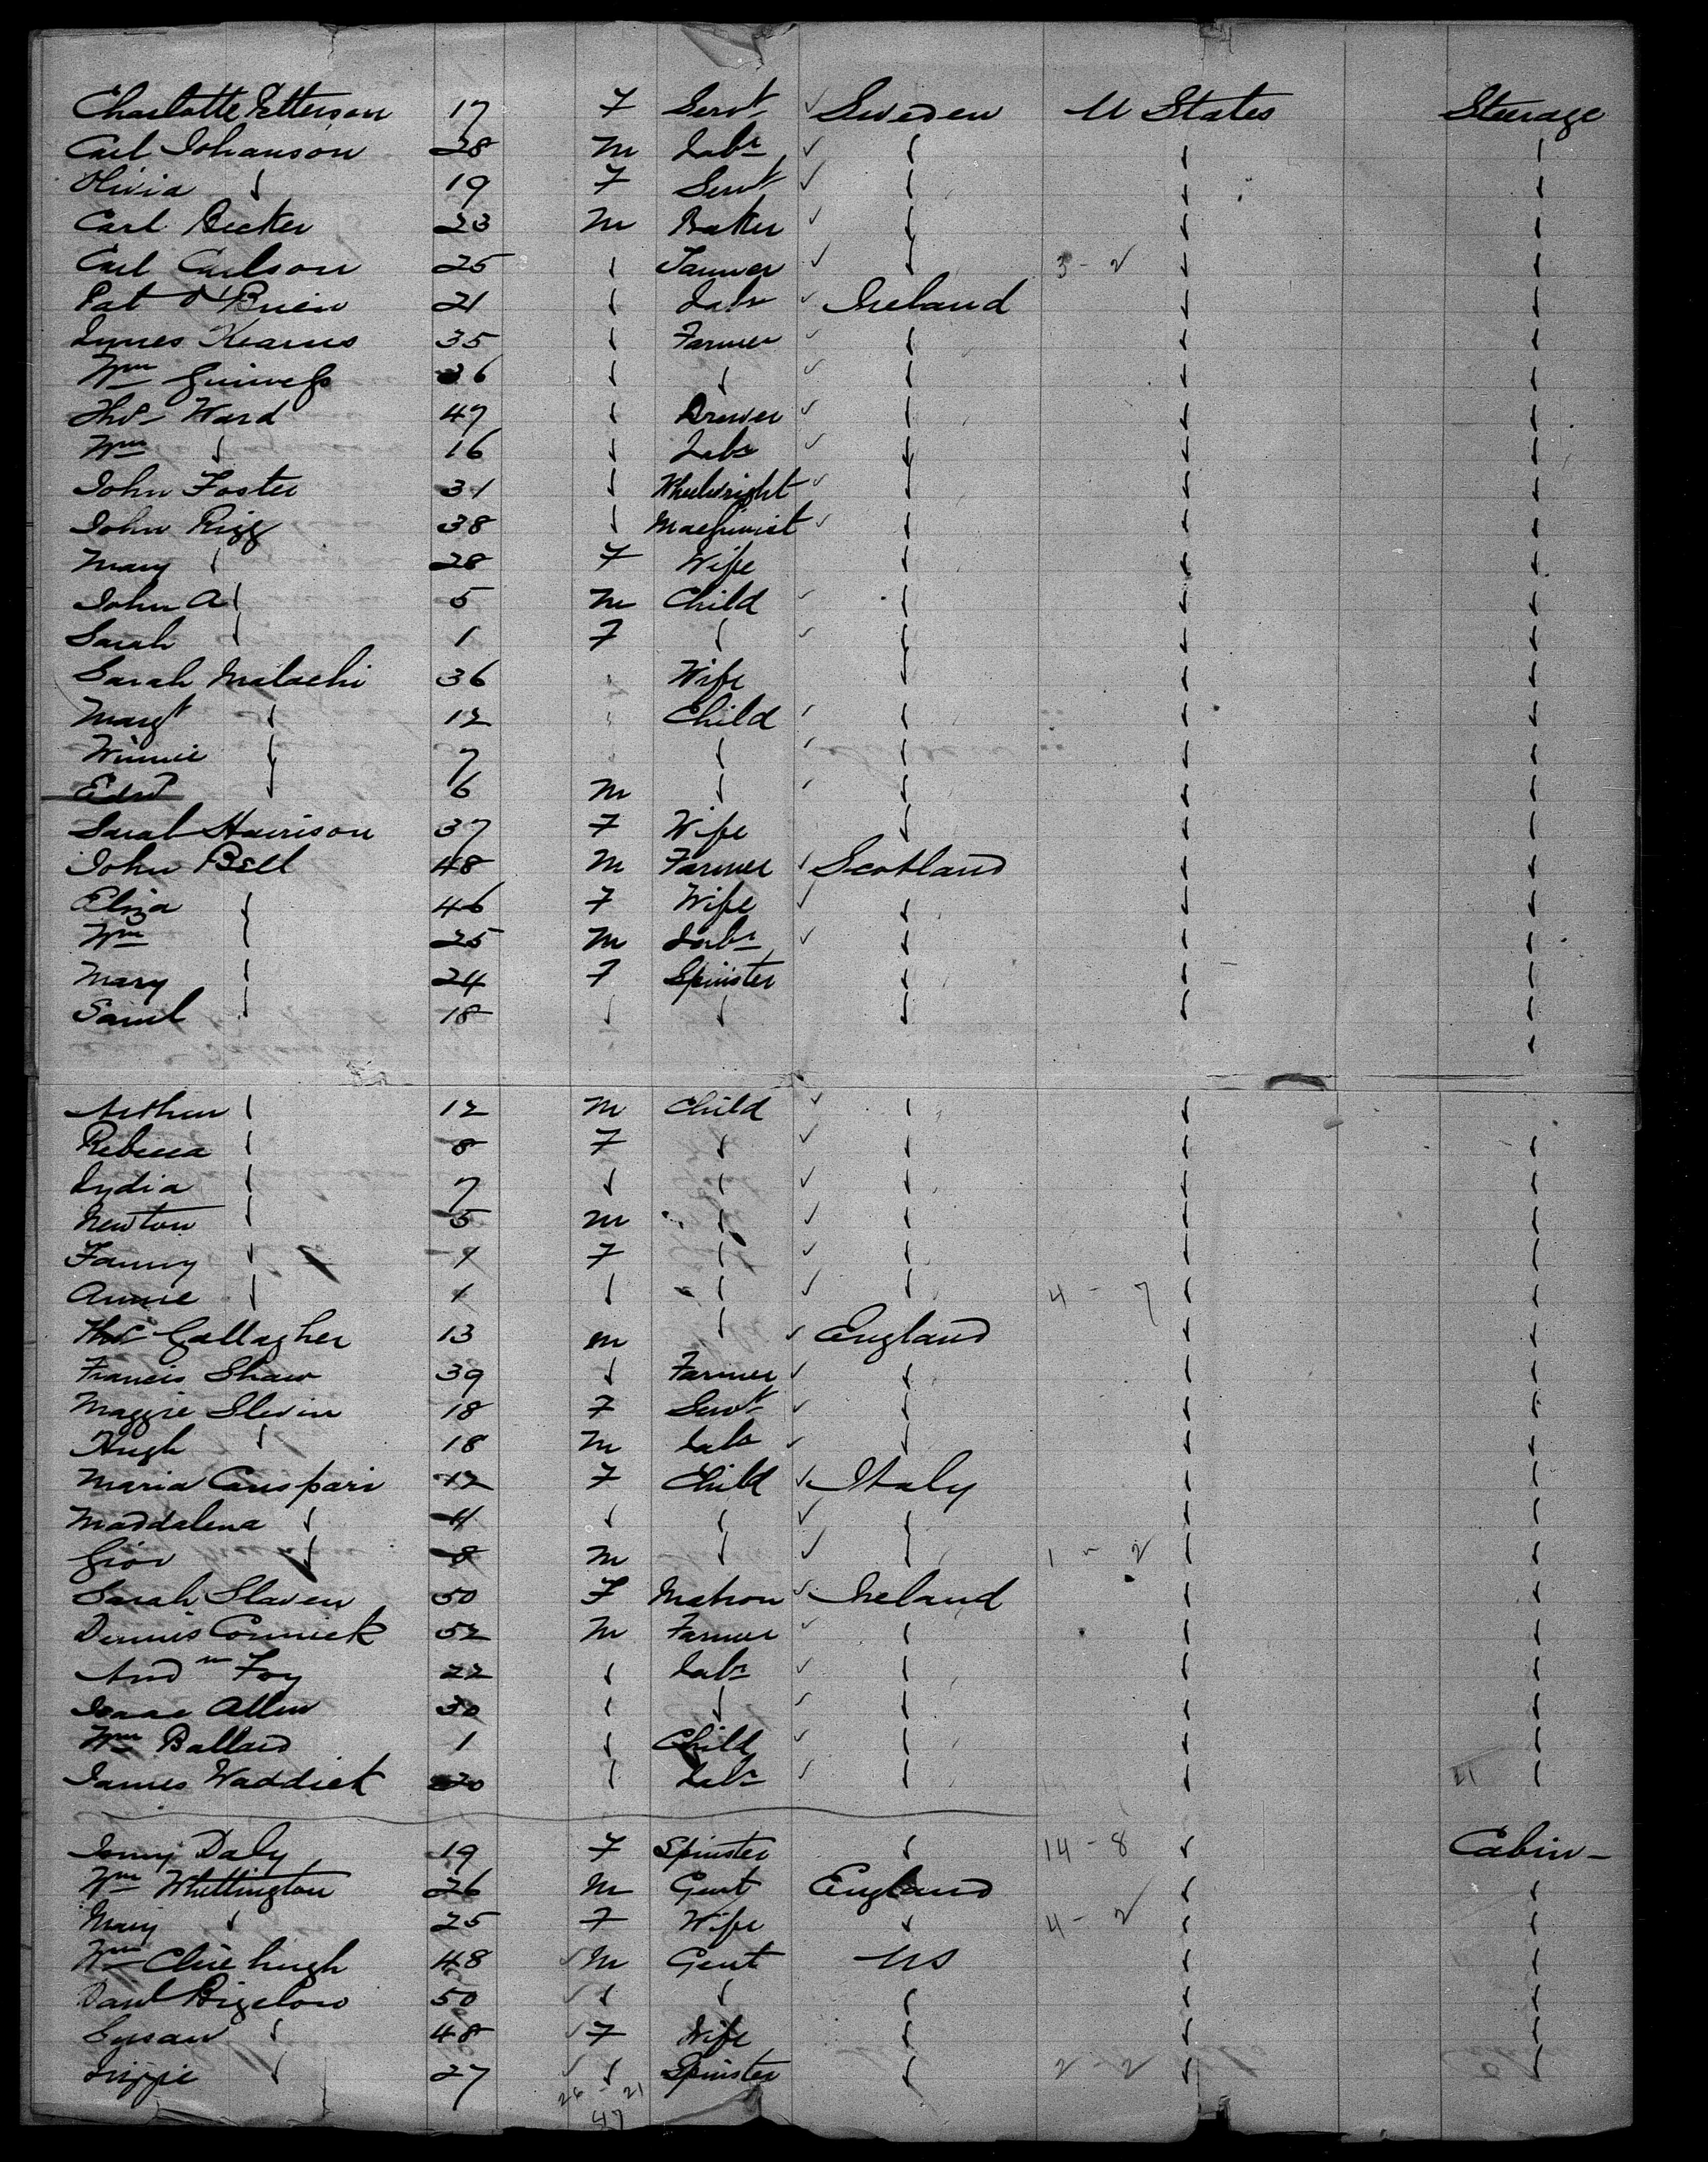 Charlotte Petterson 17 F Servt ✓ Sweden U States Steerage
Carl Johanson 28 M Labr ✓
Olivia 19 F Servt ✓
Carl Becker 23 M Baker ✓
Carl Carlson 25 Farmer ✓ 3 - 2
Pat O'Brien 21 Labr ✓ Ireland
James Kearns 35 Farmer ✓
Wm Guiness 36 ✓
Thos Ward 47 Brewer ✓
Wm 16 Labr ✓
John Foster 31 Wheelwright ✓
John Rigg 38 Machinist ✓
Mary 28 F Wife
John A 5 M Child
Sarah 1 F
Sarah Malachi 36 Wife
Margt 12 Child
Winnie 7
Edwd 6 M
Sarah Harrison 37 F Wife
John Bell 48 M Farmer ✓ Scotland
Eliza 46 F Wife ✓
Wm 25 M Labr ✓
Mary 24 F Spinster
Saml 18
Arthur 12 M Child ✓
Rebecca 8 F ✓
Lydia 7 ✓
Newton 5 M ✓
Fanny F ✓
Annie 1 ✓ 4 - 7
Thos Gallagher 13 M ✓ England
Francis Shaw 39 Farmer ✓
Maggie Slevin 18 F Servt ✓
Hugh 18 M Labr ✓
Maria Caspari 12 F Child ✓ Italy
Maddalena ✓
Giov 8 M ✓ 1 - 2
Sarah Slaven 50 F Matron ✓ Ireland
Dennis Cormick 52 M Farmer ✓
Andw Foy 22 Labr ✓
Isaac Allen 30 ✓
Wm Ballard 1 Child ✓
James Waddick 20 Labr ✓ 21
Jenny Daly 19 F Spinster 14 - 8 Cabin -
Wm Whittington 26 M Gent England
Mary 25 F Wife 4 - 2
Wm 48 ✓ M Gent US
Danl Bigelow 50 ✓
Susan 48 ✓ F Wife
Lizzie 27 ✓ Spinster 2 - 2
26 - 21
47